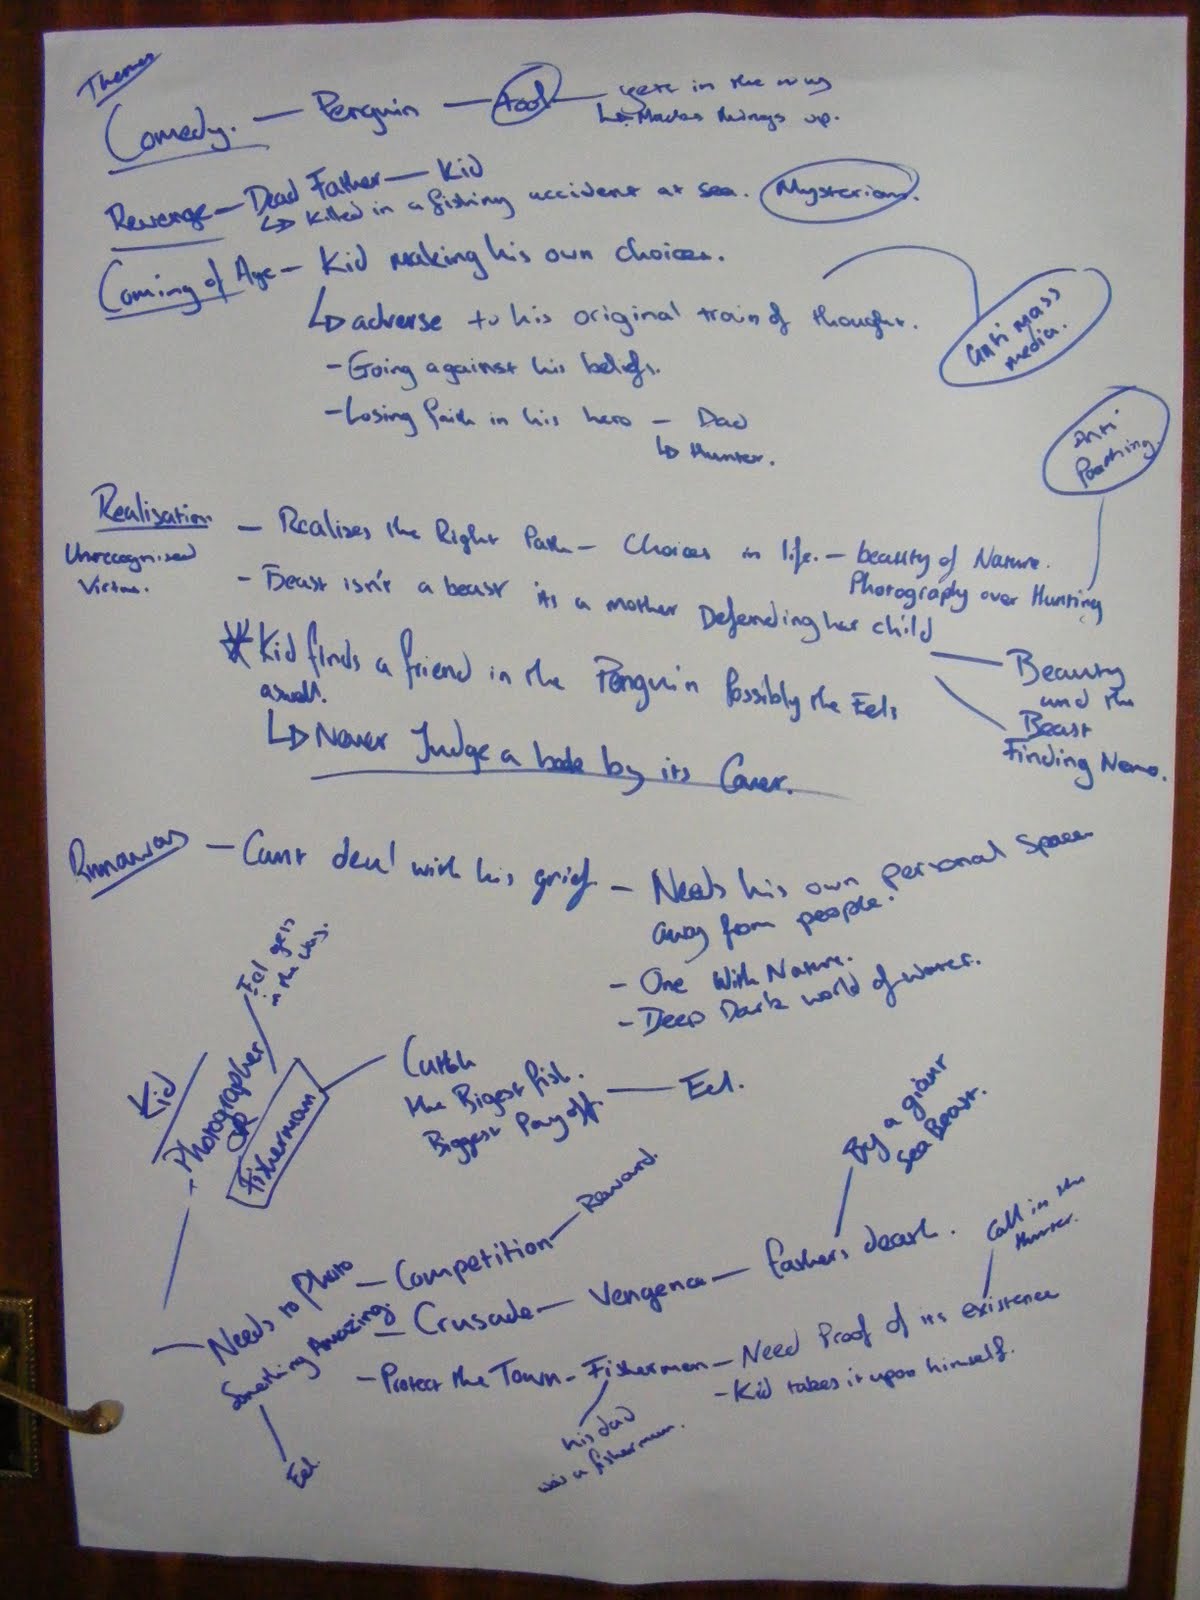 Themes
Comedy. — Penguin — tool — gets in the way
↳ Makes things up.
Revenge — Dead Father — Kid
↳ Killed in a fishing accident at sea. Mysterious.
Coming of Age — Kid making his own choices.
↳ adverse to his original train of thought.
Anti mass
media.
- Going against his beliefs.
- Losing faith in his hero — Dad
↳ Hunter.
Anti
Poaching.
Realisation — Realises the Right Path — Choices in life. — beauty of Nature.
Unrecognised
Photography over Hunting
- Beast isn't a beast its a mother Defending her child
* Kid finds a friend in the Penguin Possibly the Eels
aswell.
Beauty
and the
Beast
Finding Nemo.
↳ Never Judge a book by its Cover.
Runaway — Cant deal with his grief — Needs his own personal space
away from people.
- One With Nature.
- Deep Dark world of water.
Eel gets
in the way.
Kid
Photographer
OR
Fisherman
Catch
the Biggest fish.
Biggest Pay off. — Eel.
By a giant
Sea Beast.
Needs to Photo
Something Amazing.
Eel
- Competition — Reward.
- Crusade — Vengence — fathers death.
Call in the
Hunter.
- Protect the Town — Fishermen — Need Proof of its existence
- Kid takes it upon himself.
his dad
was a fisherman.